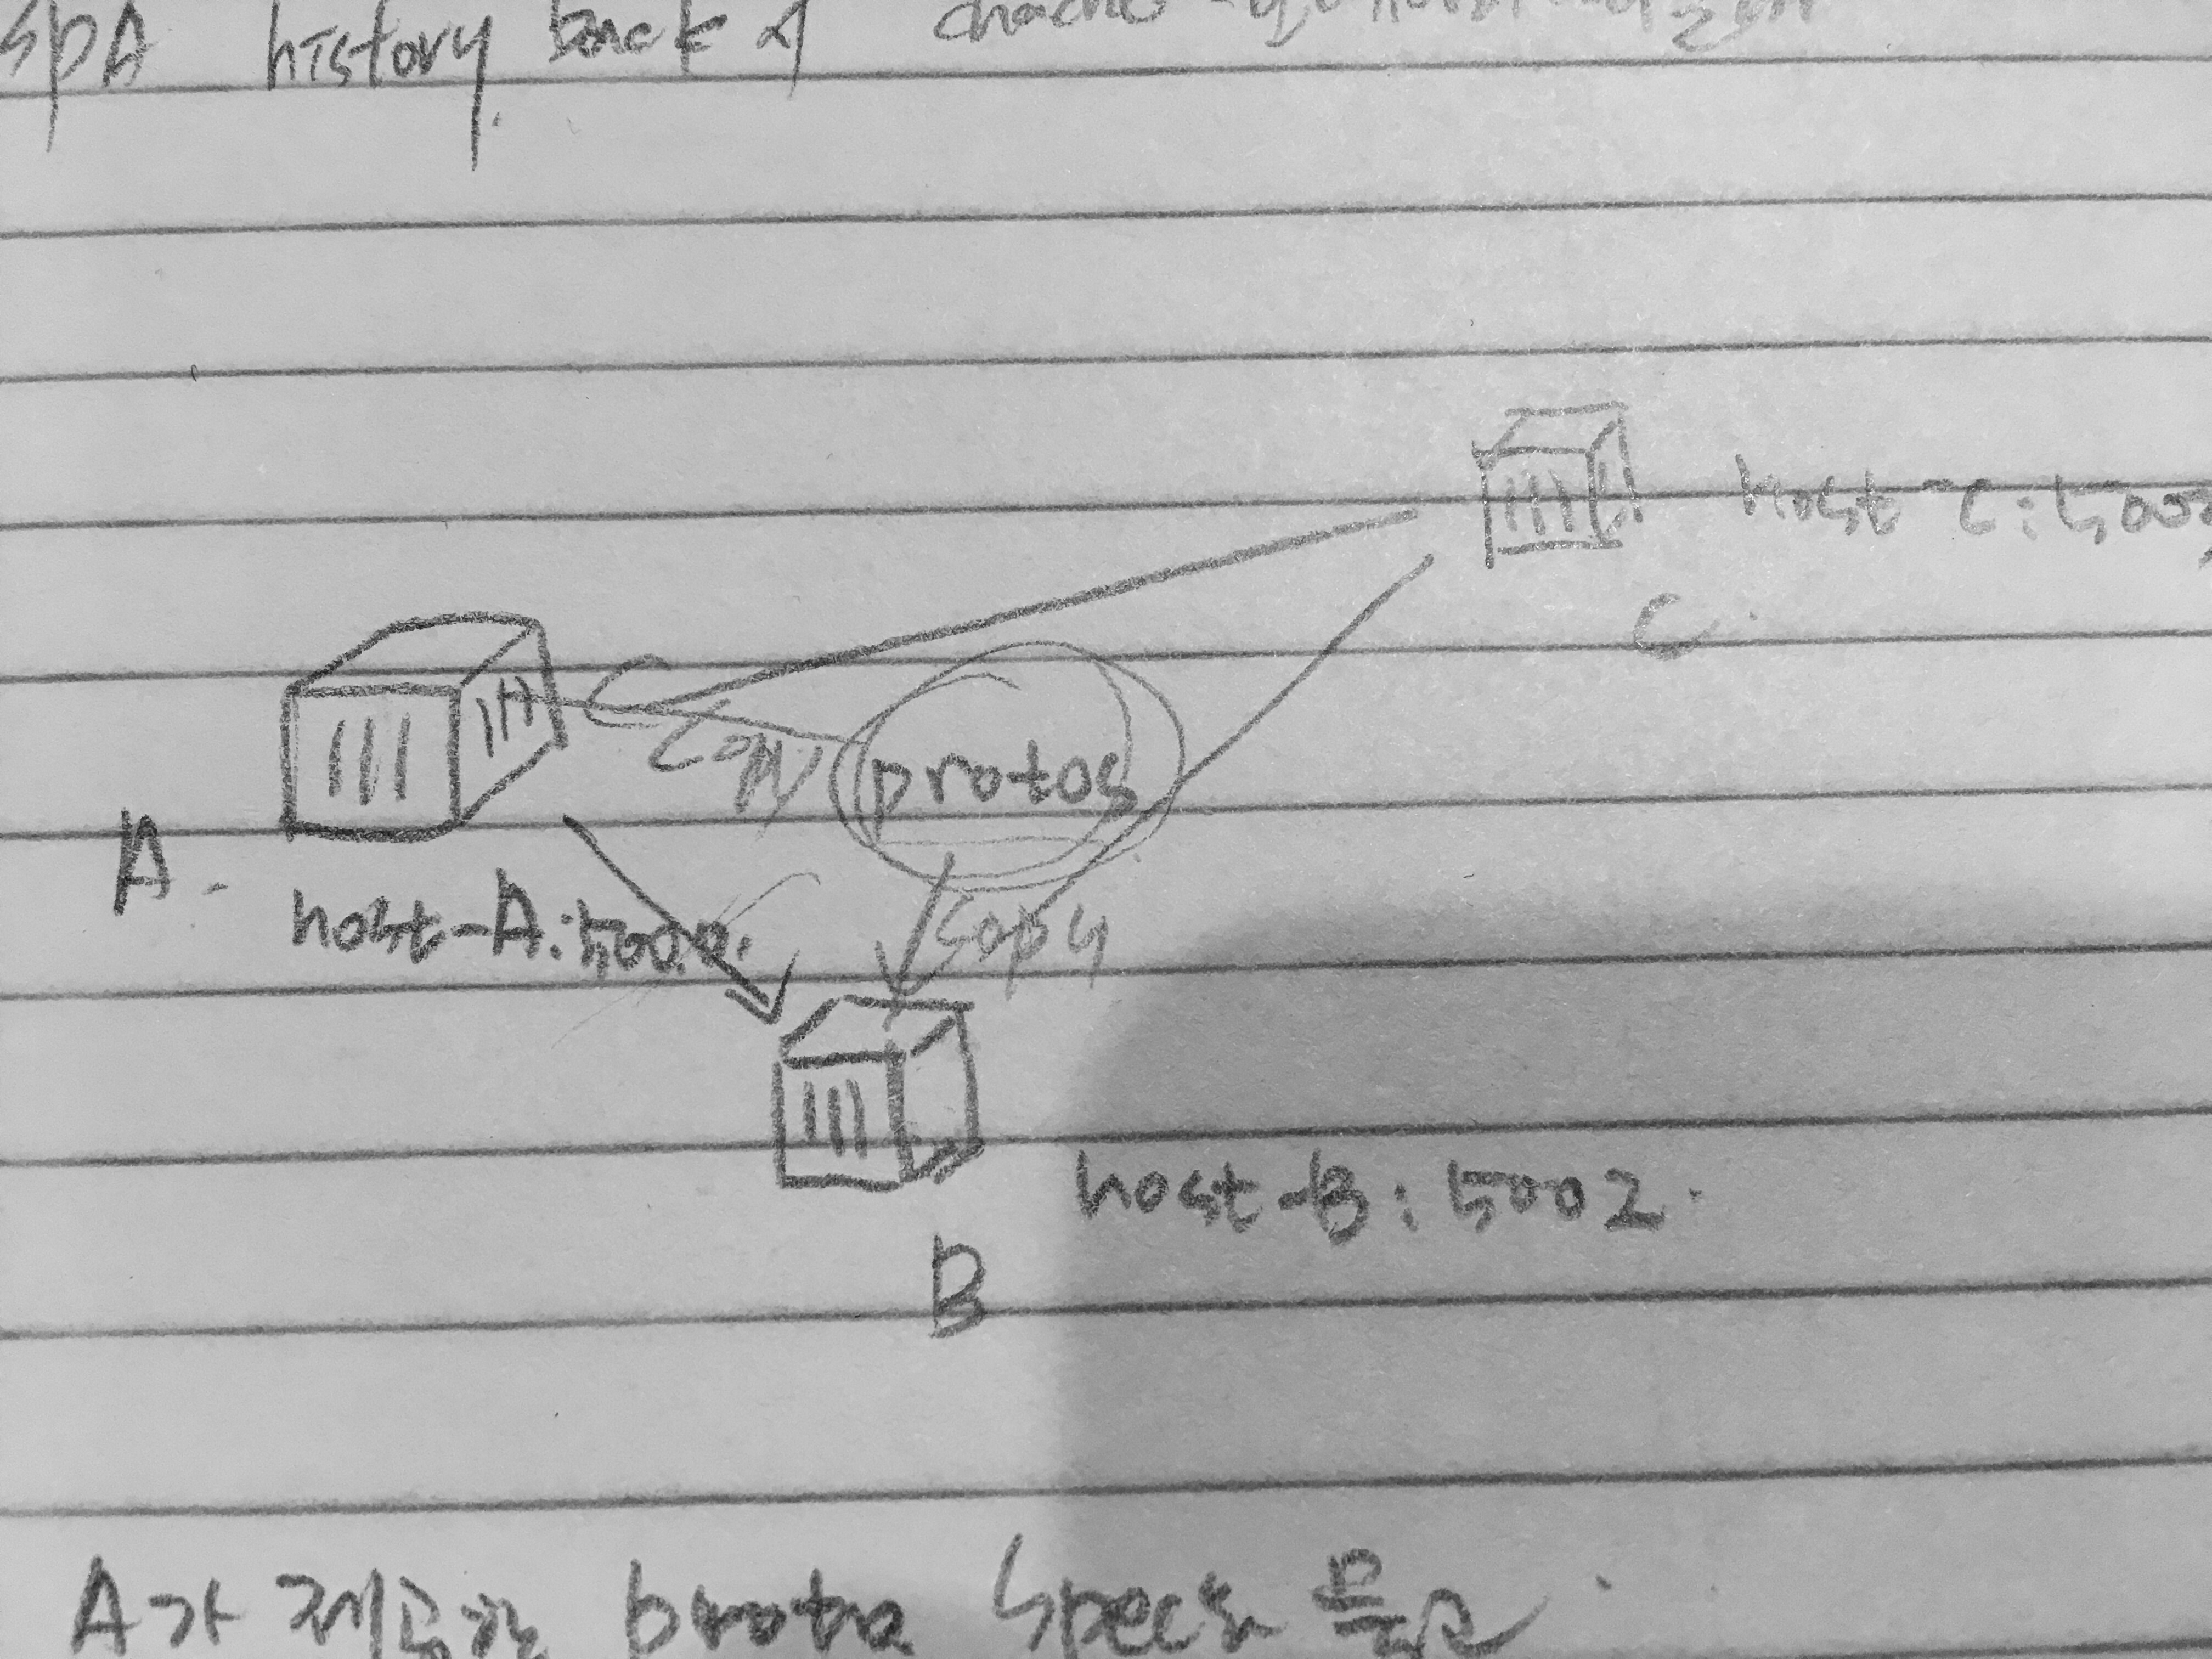 SPA history back 시
host-C:500
C.
copy protos
A.
host-A:5000.
copy
host-B:5002.
B
A가 제공할 proto spec 필요.